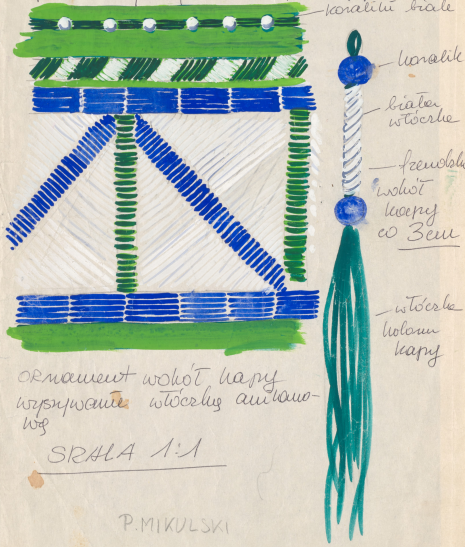 koraliki białe
koralik
biała
włóczka
frendzla
wokół
kapy
co 3cm
włóczka
koloru
kapy
ORNAMENT wokół kapy
wyszywanie włóczką anilano-
wą
SKALA 1:1
P. MIKULSKI